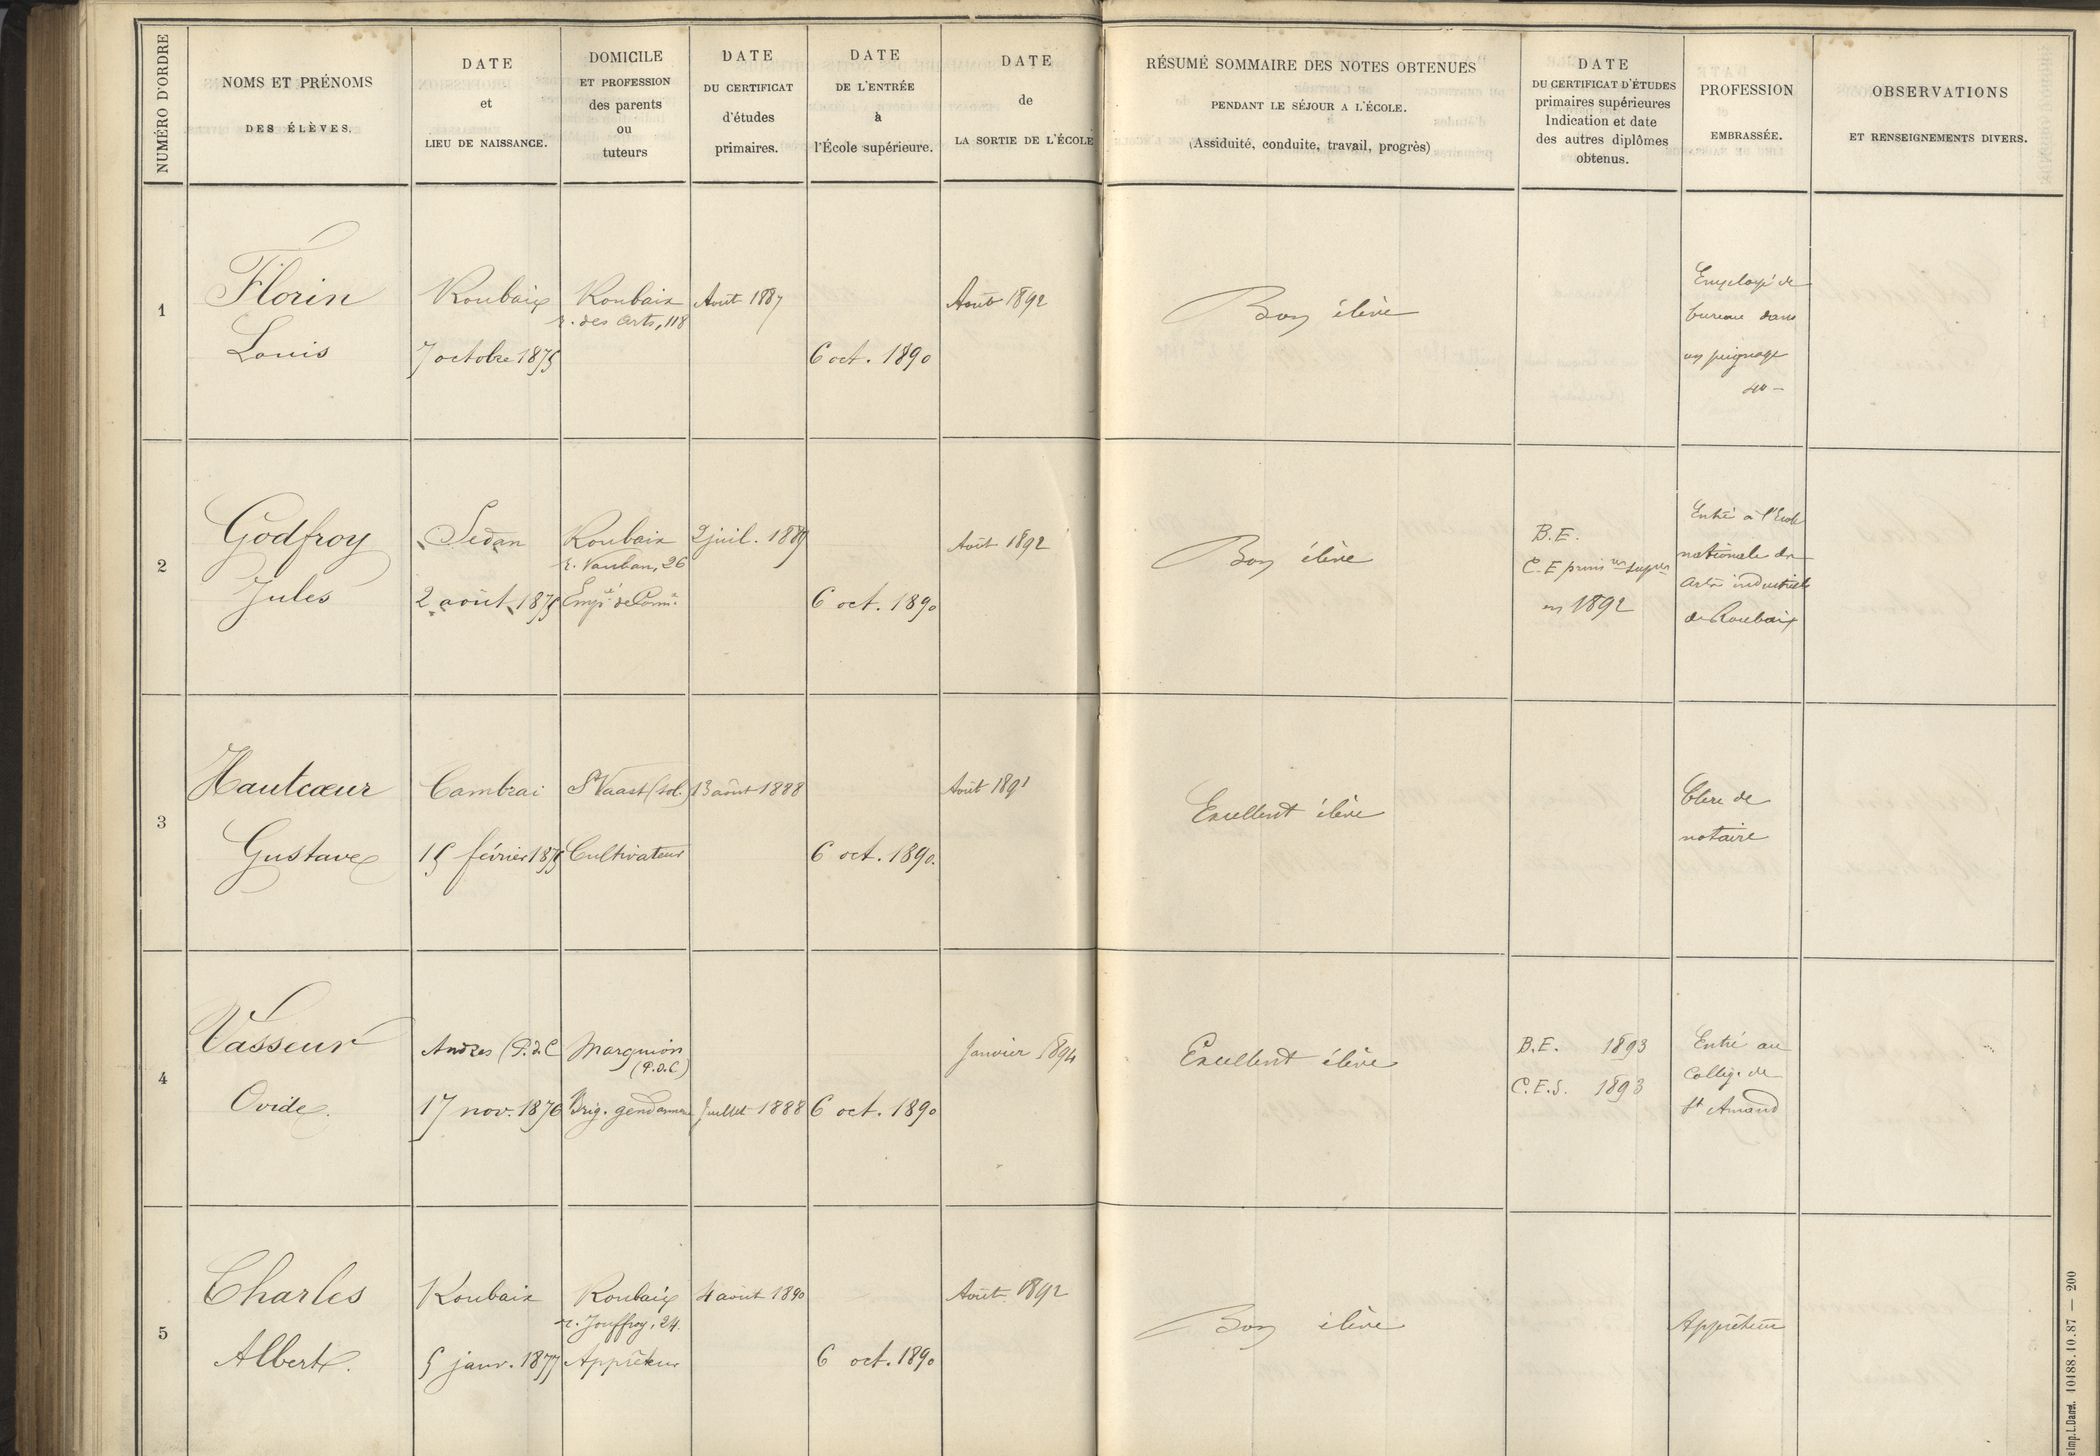 NUMÉRO D'ORDRE
NOMS ET PRÉNOMS
DES ÉLÈVES.
DATE
et
LIEU DE NAISSANCE.
DOMICILE
ET PROFESSION
des parents
ou
tuteurs
DATE
DU CERTIFICAT
d'études
primaires.
DATE
DE L'ENTRÉE
à
l'École supérieure.
DATE
de
LA SORTIE DE L'ÉCOLE
RÉSUMÉ SOMMAIRE DES NOTES OBTENUES
PENDANT LE SÉJOUR A L'ÉCOLE.
(Assiduité, conduite, travail, progrès)
DATE
DU CERTIFICAT D'ÉTUDES
primaires supérieures
Indication et date
des autres diplômes
obtenus.
PROFESSION
EMBRASSÉE.
OBSERVATIONS
ET RENSEIGNEMENTS DIVERS.
1
Florin
Louis
Roubaix
7 octobre 1875
Roubaix
r. des Arts, 118
Août 1887
6 oct. 1890
Août 1892
Bon élève
Employé de
bureau dans
un peignage
2
Godfroy
Jules
Sedan
2 août 1875
Roubaix
r. Vauban, 26
Empé de Comce
2 juil. 1889
6 oct. 1890
Août 1892
Bon élève
B.E.
C.E primres supres
en 1892
Entré à l'Ecole
nationale des
Arts industriels
de Roubaix
3
Hautcœur
Gustave
Cambrai
15 février 1875
St Vaast (Sol.)
Cultivateur
13 août 1888
6 oct. 1890.
Août 1891
Excellent élève
Clerc de
notaire
4
Vasseur
Ovide.
Andres (P.d.C
17 nov. 1876
Marquion
(P.d.C)
Brig. gendarmerie
Juillet 1888
6 oct. 1890
Janvier 1894
Excellent élève
B.E. 1893
C.E.S. 1893
Entré au
Collège de
St Amand
5
Charles
Albert.
Roubaix
5 janv. 1877
Roubaix
r. Jouffroy, 24.
Apprêteur
4 août 1890
6 oct. 1890
Août 1892
Bon élève
Apprêteur
Imp. L. Danel. 10188.10.87 — 200